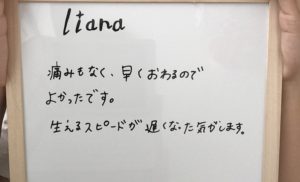 liana
痛みもなく、早くおわるので
よかったです。
生えるスピードが遅くなった気がします。